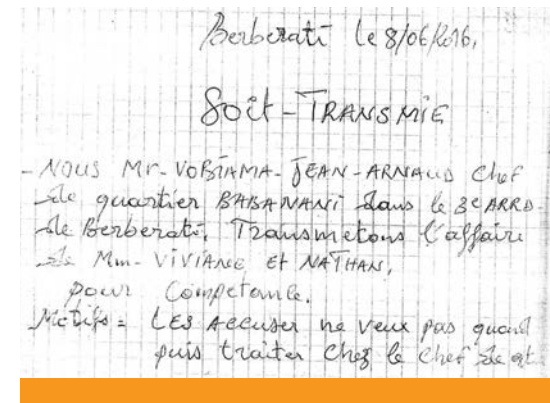 Berberati le 8/06/2016,
Soit-TRANSMIE
- NOUS Mr-VOBIAMA-JEAN-ARNAUD Chef
de quartier BABANANI dans le 3e ARRD.
de Berberati, Transmetons l'affaire
de Mm-VIVIANE Et NATHAN,
pour Competance.
Motifs = LES Accuser ne veux pas quand
puis traiter chez le chef de qt